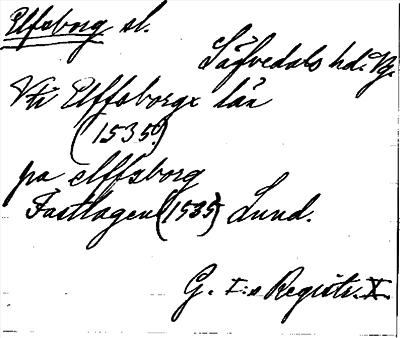 Elfsborg sl.
Säfvedals hd. Vg.
Vti Elffsborgx län
(1535?)
pa elffsborg
Fastlagen (1535) Lund.
G. I:s Registr. X.